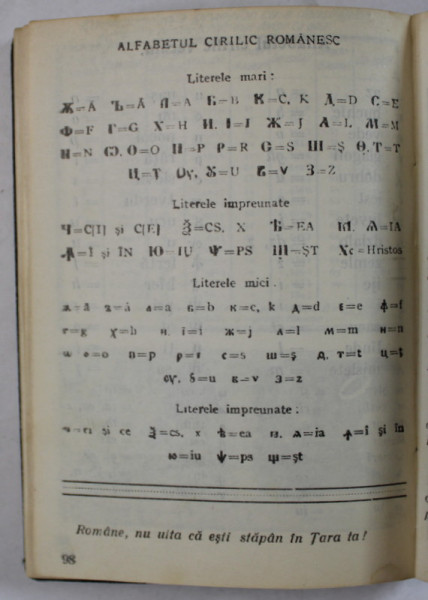 ALFABETUL CIRILIC ROMÂNESC
Literele mari:
Ѫ=Ă Ъ=Ă Л=A Б=B К=C, K Д=D Є=E
Ф=F Г=G Х=H И, І=I Ж=J Л=L М=M
Н=N Ѡ, О=O П=P Р=R С=S Ш=Ş Ѳ, Т=T
Ц=Ţ Оу, Ꙋ=U В=V З=Z
Literele împreunate
Ч=C[I] şi C[E] Ѯ=CS, X Ѣ=EA Ѩ=IA
Ꙟ=Î şi ÎN Ю=IU Ѱ=PS Щ=ŞT Хс=Hristos
Literele mici:
ѫ=ă ъ=ă а=a б=b к=c, k д=d є=e ф=f
г=g х=h и, і=i ж=j л=l м=m н=n
о=o п=p р=r с=s ш=ş т=t ц=ţ
оу, ꙋ=u в=v з=z
Literele împreunate:
ч=ci şi ce ѯ=cs, x ѣ=ea ѧ=ia ꙟ=î şi în
ю=iu ѱ=ps щ=şt
Române, nu uita că eşti stăpân în Ţara ta!
98